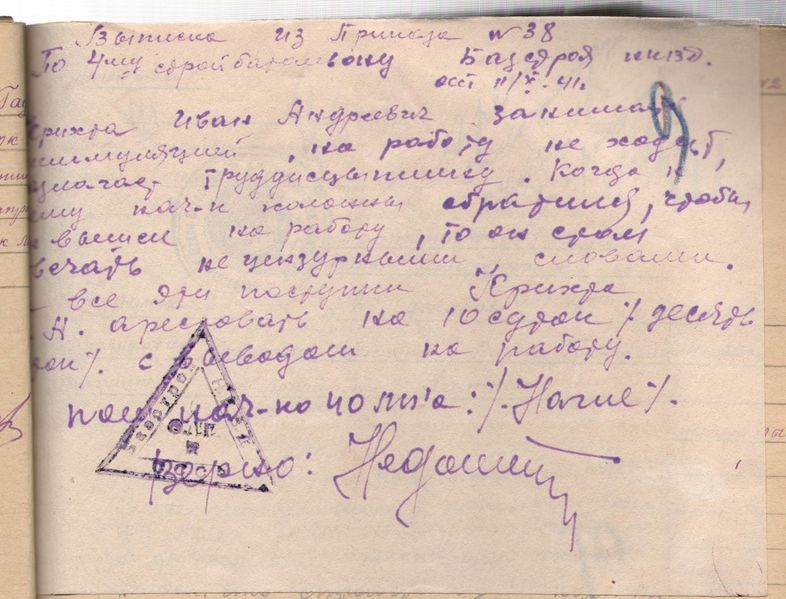 Выписка из Приказа № 38
По 4му стройбатальону Базстроя
от 11/X-41г
Крихта Иван Андреевич занимает
симмуляцией, на работу не ходит,
труддисцыплину. Когда к
ему нач-к колонны обратился, чтобы
вышел на работу, то он стал
вечать нецензурными словами.
все эти поступки Крихта
А. арестовать на 10 суток /. десять
/. с выводом на работу.
пом нач-ка : /. /.
Верно: